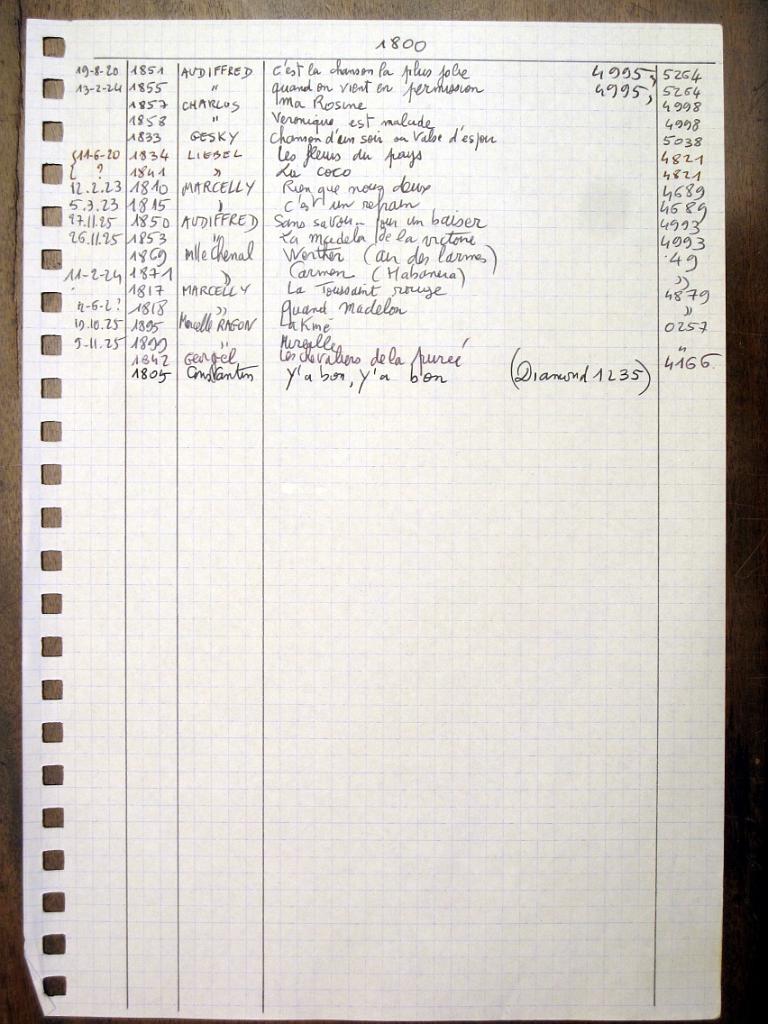 1800
19-8-20 1851 AUDIFFRED C'est la chanson la plus jolie 4995, 5264
13-2-24 1855 " quand on vient en permission 4995, 5264
1857 CHARLUS Ma Rosine 4998
1858 " Veronique est malade 4998
1833 GESKY Chanson d'un soir ou Valse d'espoir 5038
11-6-20 1834 LIEBEL Les fleurs du pays 4821
? 1841 " La coco 4821
12.2.23 1810 MARCELLY Rien que nous deux 4689
5.3.23 1815 " C'est un refrain 4689
27.11.25 1850 AUDIFFRED Sans savoir... pour un baiser 4993
26.11.25 1853 " La madelon de la victoire 4993
1869 Mlle Chenal Werther (air des larmes) 49
11-2-24 1871 " Carmen (Habanera) "
1817 MARCELLY La Toussaint rouge 4879
4-6-2? 1818 " Quand Madelon "
19.10.25 1895 Marcelle RAGON Lakmé 0257
9-11.25 1899 " Mireille "
1842 Georgel Les chevaliers de la purée 4166
1805 Constantin Y'a bon, y'a bon (Diamond 1235)